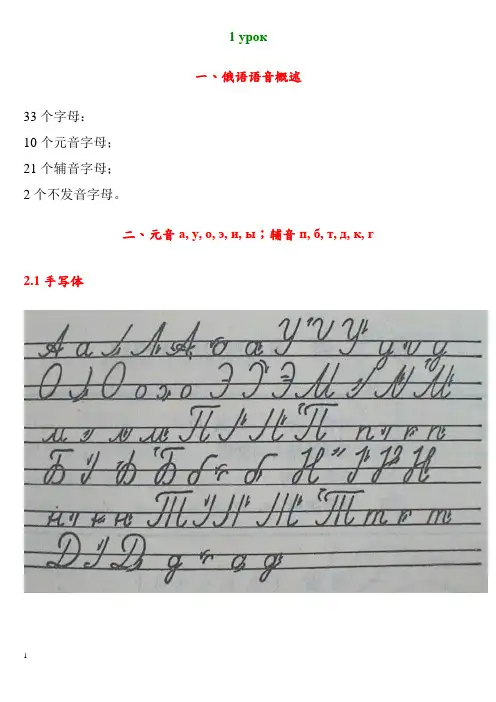 1 урок
一、俄语语音概述
33 个字母：
10 个元音字母；
21 个辅音字母；
2 个不发音字母。
二、元音 а, у, о, э, и, ы；辅音 п, б, т, д, к, г
2.1 手写体
А а А а У У у у
О О о о Э Э М М
м м П П п п
Б Б б б Н Н
н н Т Т т т
Д Д д д
1